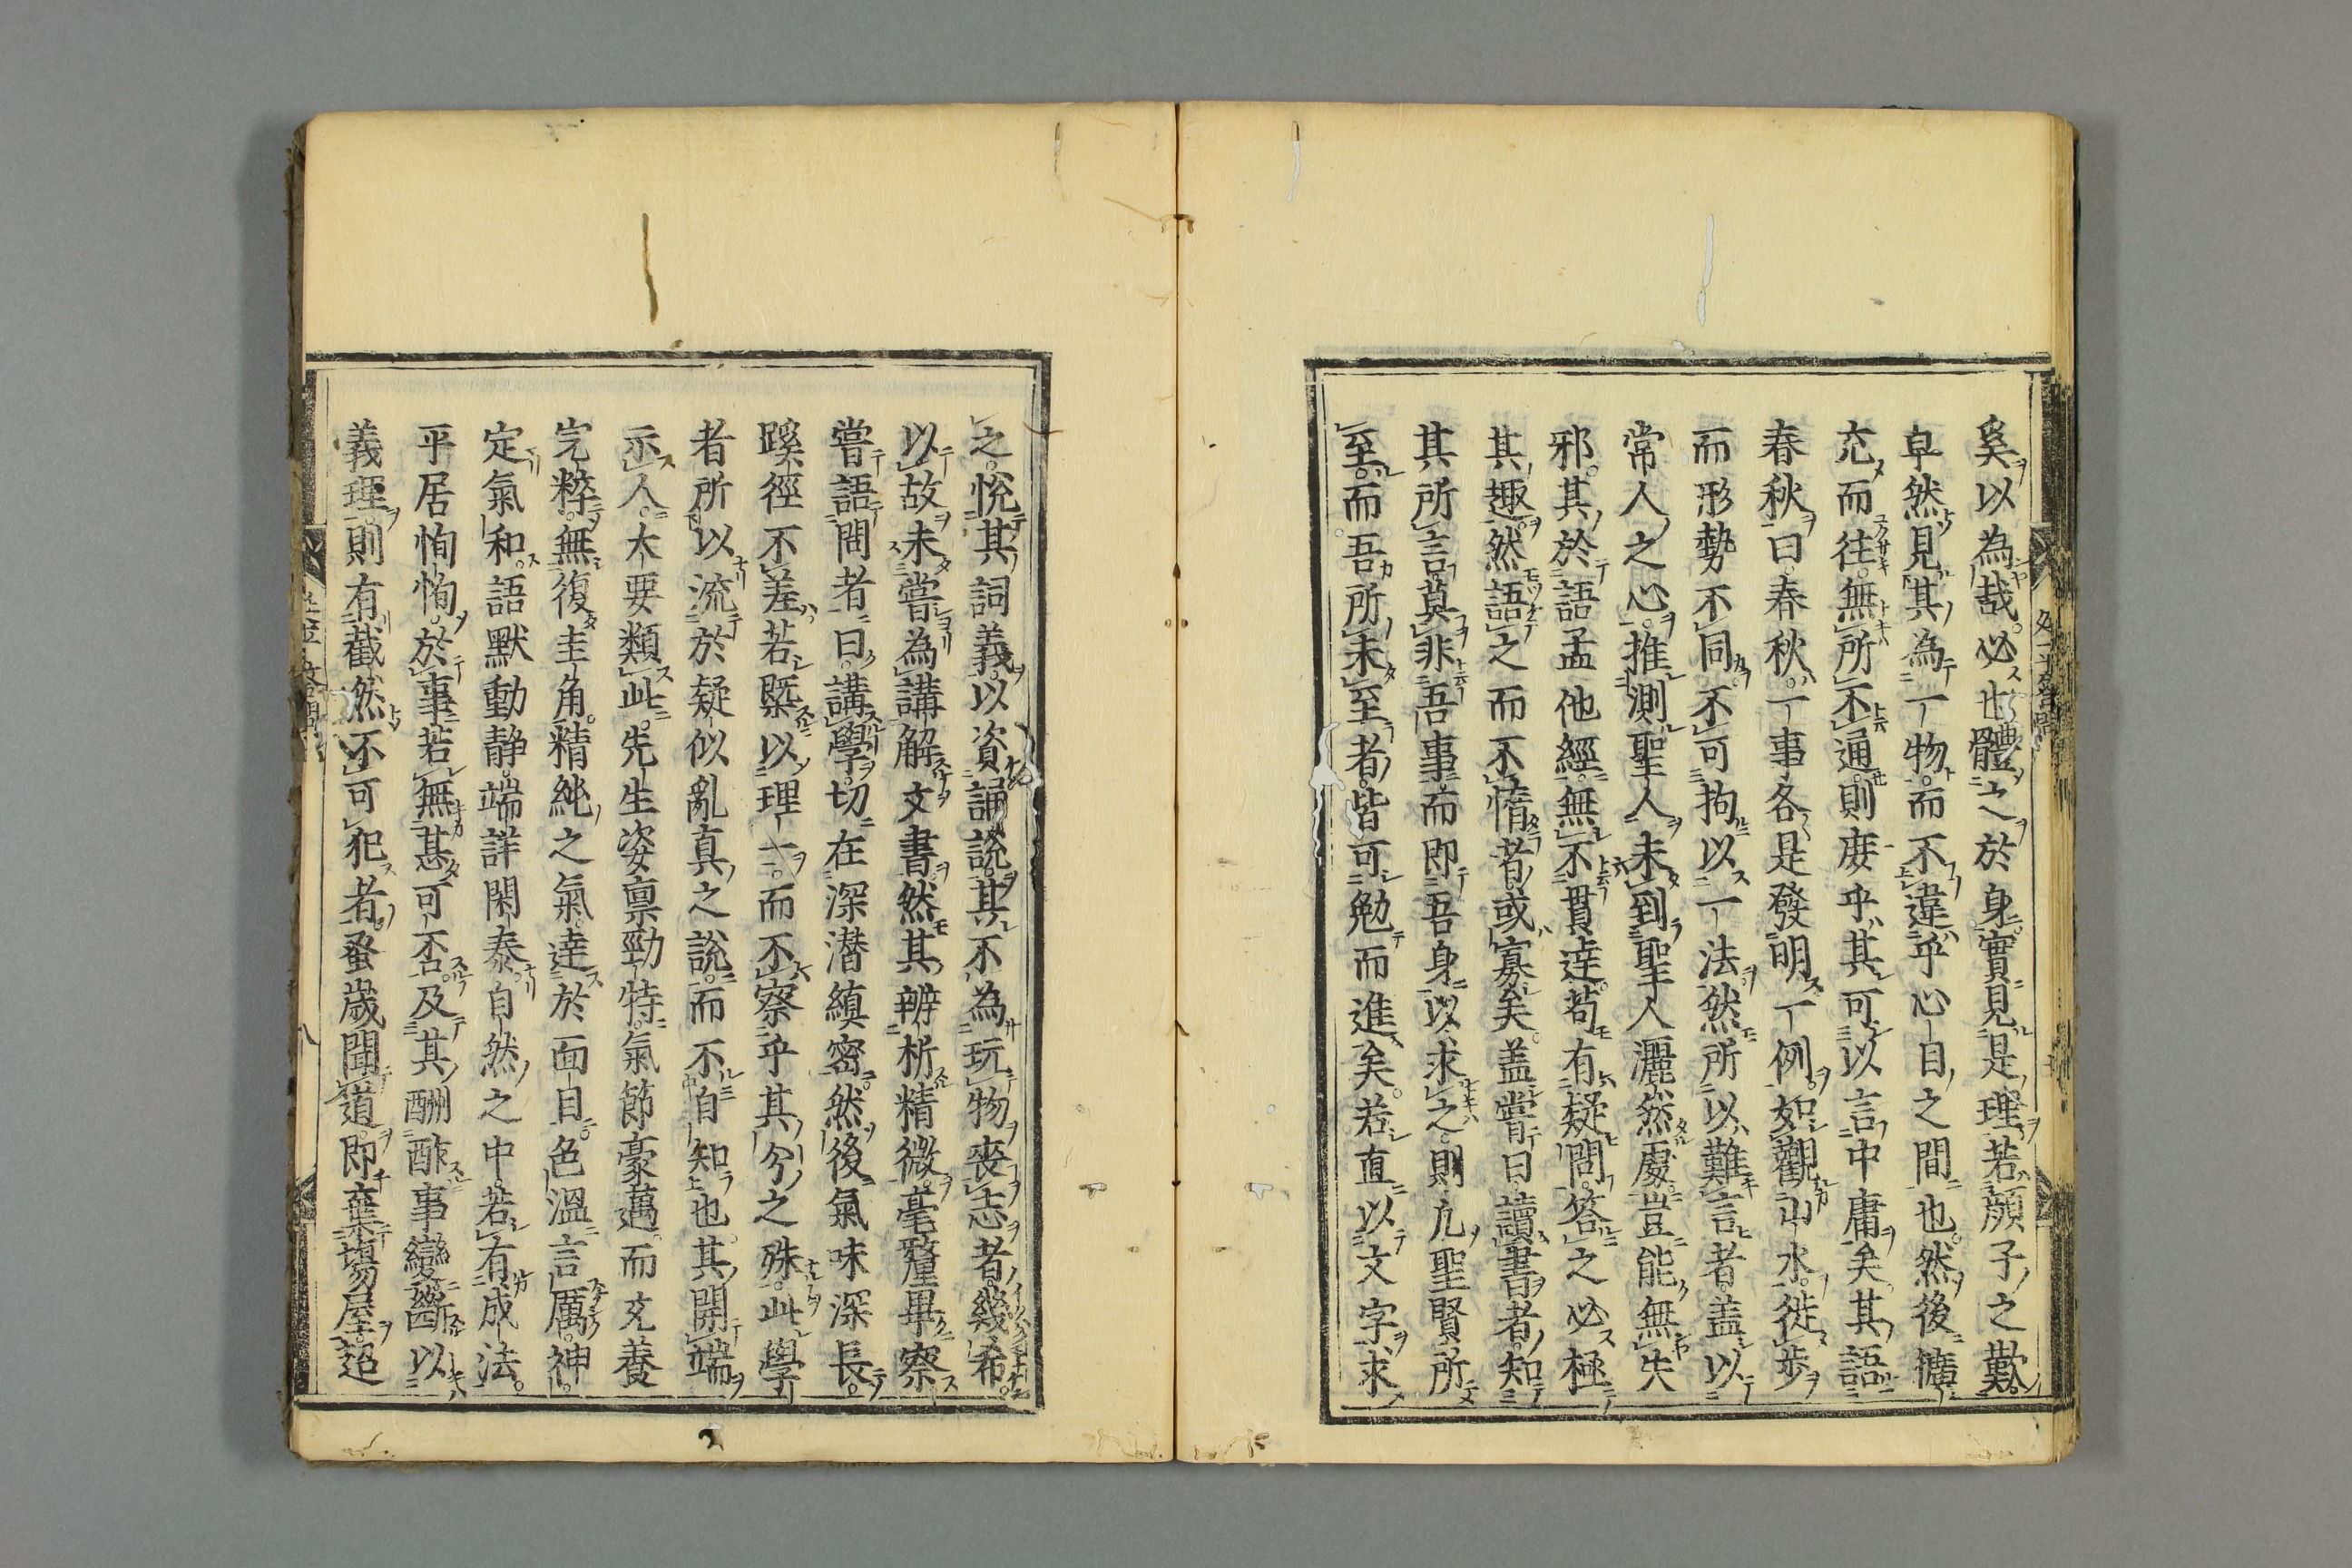 奚以為哉必也體之於身實見是理若顔子之歎
卓然見其為一物而不違乎心目之間也然後擴
充而往無所不通則庶乎其可以言中庸矣其語
春秋曰春秋一事各是發明一例如觀山水徙歩
而形勢不同不可拘以一法然所以難言者盖以
常人之心推測聖人未到聖人灑然處豈能無失
邪其於語孟他經無不貫達苟有疑問答之必極
其趣然語之而不惰者或寡矣盖嘗曰讀書者知
其所言莫非吾事而即吾身以求之則凢聖賢所
至而吾所未至者皆可勉而進矣若直以文字求
之悅其詞義以資誦說其不為玩物喪志者幾希
以故未嘗為講解文書然其辨析精微毫釐畢察
嘗語問者曰講學切在深潜縝密然後氣味深長
蹊徑不差若槩以理一而不察乎其分之殊此學
者所以流於疑似亂真之說而不自知也其開端
示人大要類此先生姿禀勁特氣節豪邁而充養
完粹無復圭角精純之氣達於面目色溫言厲神
定氣和語默動静端詳閑泰自然之中若有成法
平居恂恂於事若無甚可否及其酬酢事變斷以
義理則有截然不可犯者蚤歲聞道即棄塲屋超
八